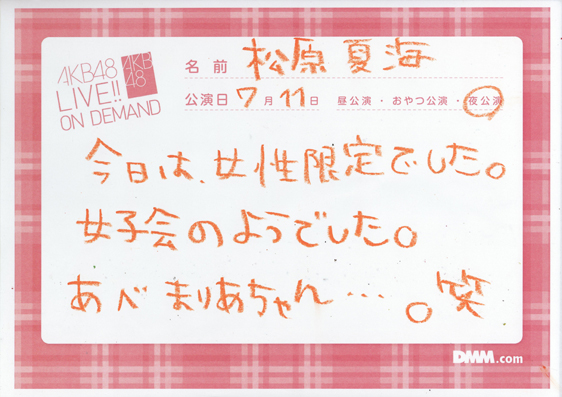 AKB48
LIVE!!
ON DEMAND
AKB
48
名前 松原夏海
公演日 7月11日 昼公演・おやつ公演・夜公演
今日は、女性限定でした。
女子会のようでした。
あべまりあちゃん…。笑
DMM.com